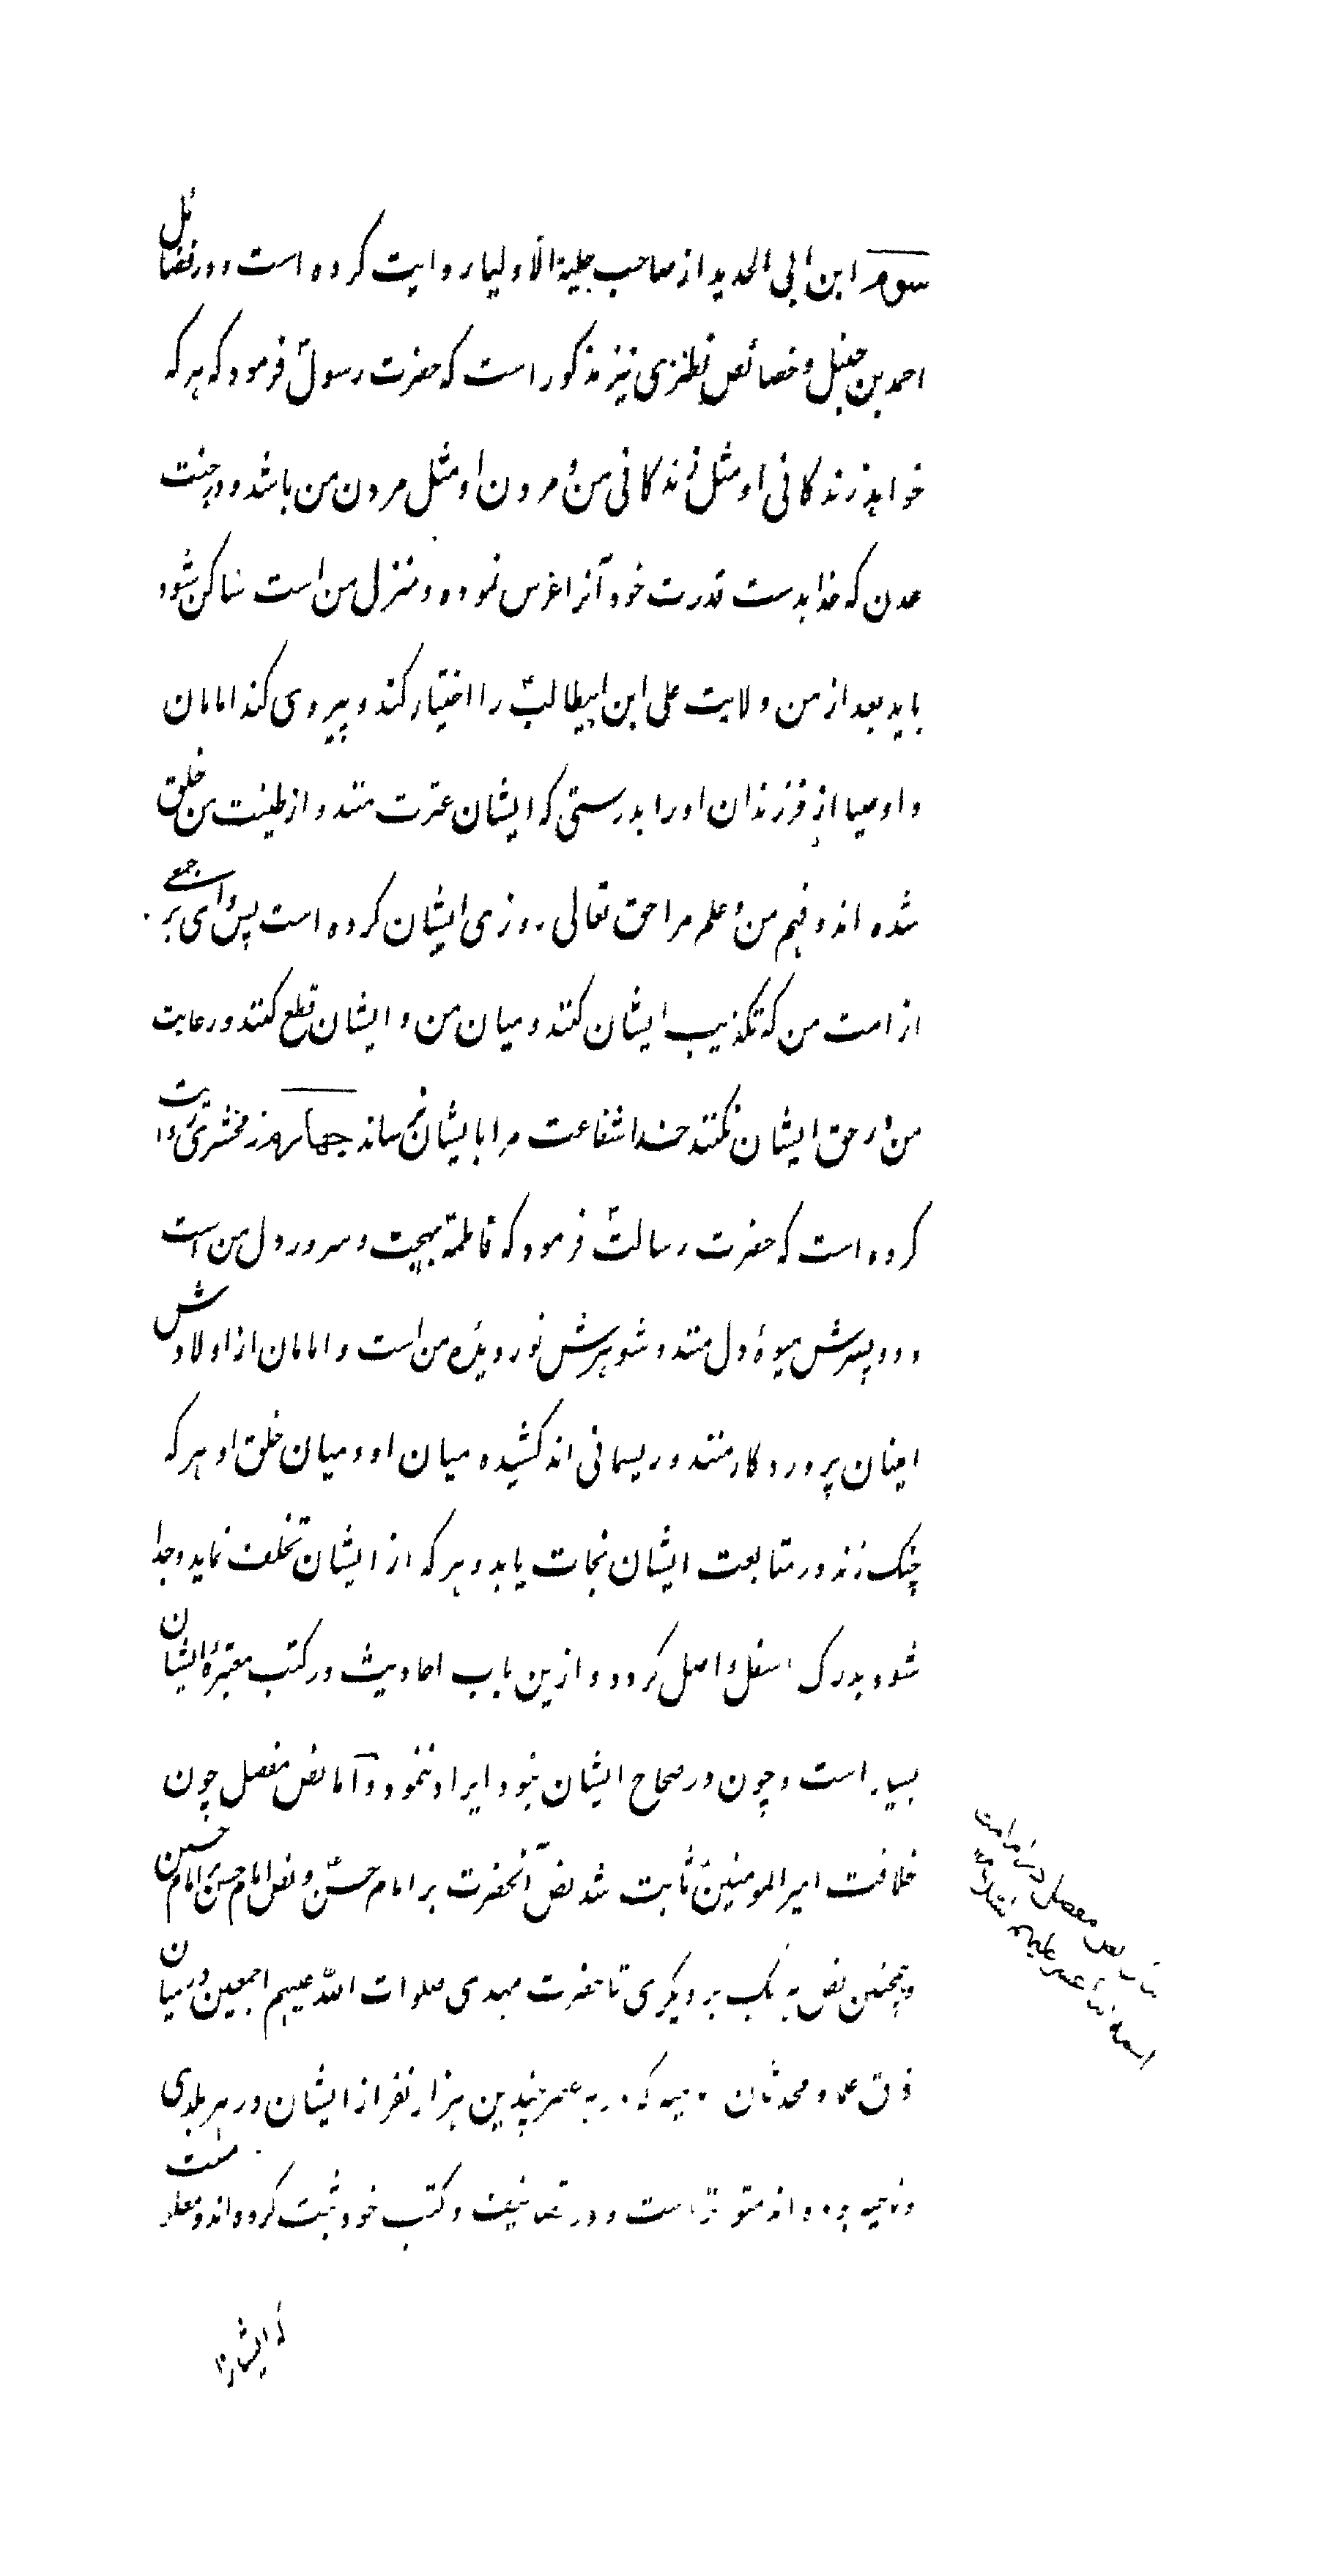 سوم ابن ابی الحدید از صاحب حلیة الاولیا روایت کرده است و در فضائل
احمد بن حنبل و خصائص نطنزی نیز مذکور است که حضرت رسولؐ فرمود که هر که
خواهد زندکانی او مثل زندکانی من و مردن او مثل مردن من باشد و در جنت
عدن که خدا بدست قدرت خود آنرا غرس نموده و منزل من است ساکن شود
باید بعد از من ولایت علی ابن ابیطالبؑ را اختیار کند و پیروی کند امامان
و اوصیا از فرزندان او را بدرستی که ایشان عترت منند و از طینت من خلق
شده اند و فهم من و علم مرا حق تعالی روزی ایشان کرده است پس وای بر جمعی
از امت من که تکذیب ایشان کنند و میان من و ایشان قطع کنند و رعایت
من در حق ایشان نکنند خدا شفاعت مرا بایشان نرساند چهارم زمخشری روایت
کرده است که حضرت رسالتؐ فرمود که فاطمه بهجت و سرور دل من است
و دو پسرش میوۀ دل منند و شوهرش نور دیدۀ من است و امامان از اولادش
امینان پروردکار منند و ریسمانی اند کشیده میان او و میان خلق او هر که
چنک زند در متابعت ایشان نجات یابد و هر که از ایشان تخلف نماید و جدا
شود بدرک اسفل واصل کردد و ازین باب احادیث در کتب معتبرۀ ایشان
بسیار است و چون در صحاح ایشان نبود ایراد ننمود و اما نص مفصل چون
خلافت امیر المومنینؑ ثابت شد نص آنحضرت بر امام حسنؑ و نص امام حسن بر امام حسین
و همچنین نص هر یک بر دیکری تا حضرت مهدی صلوات الله علیهم اجمعین در میان
فرق علما و محدثان که در هر عصر چندین هزار نفر از ایشان در هر بلدی
و ناحیه بوده اند متواتر است و در تصانیف و کتب خود ثبت کرده اند و معلوم است
که ایشانرا
نص مفصل در امامت